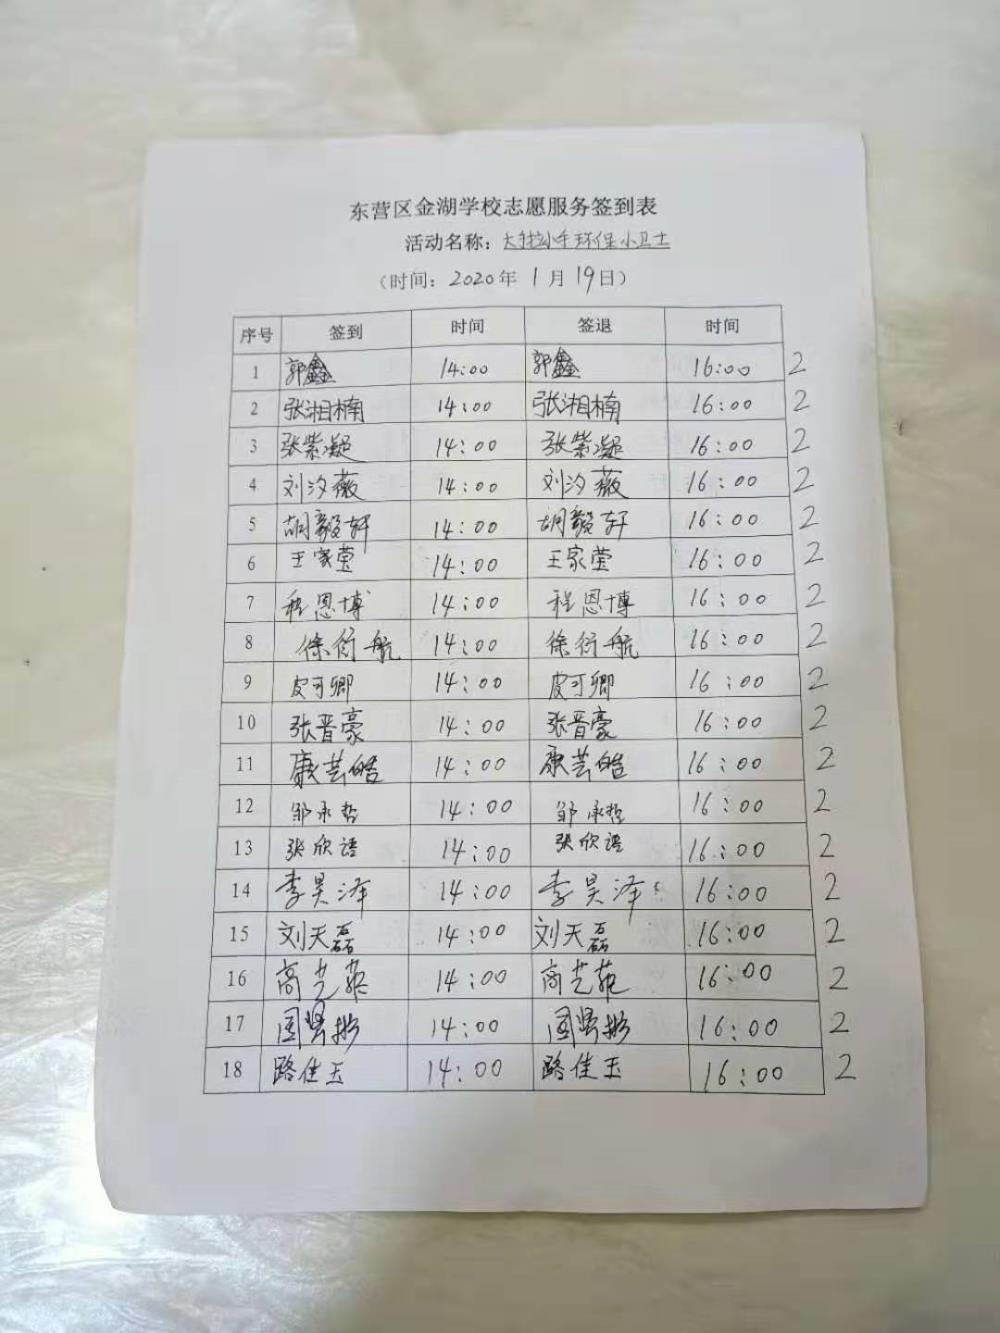 东营区金湖学校志愿服务签到表
活动名称：大手拉小手环保小卫士
（时间：2020年 1月 19日）
序号 签到 时间 签退 时间
1 郭鑫 14:00 郭鑫 16:00 2
2 张湘楠 14:00 张湘楠 16:00 2
3 张紫凝 14:00 张紫凝 16:00 2
4 刘汐薇 14:00 刘汐薇 16:00 2
5 胡毅轩 14:00 胡毅轩 16:00 2
6 王家莹 14:00 王家莹 16:00 2
7 程恩博 14:00 程恩博 16:00 2
8 徐衍航 14:00 徐衍航 16:00 2
9 皮可卿 14:00 皮可卿 16:00 2
10 张晋豪 14:00 张晋豪 16:00 2
11 康芸皓 14:00 康芸皓 16:00 2
12 邹承哲 14:00 邹承哲 16:00 2
13 张欣语 14:00 张欣语 16:00 2
14 李昊泽 14:00 李昊泽 16:00 2
15 刘天磊 14:00 刘天磊 16:00 2
16 14:00 16:00 2
17 14:00 16:00 2
18 路佳玉 14:00 路佳玉 16:00 2